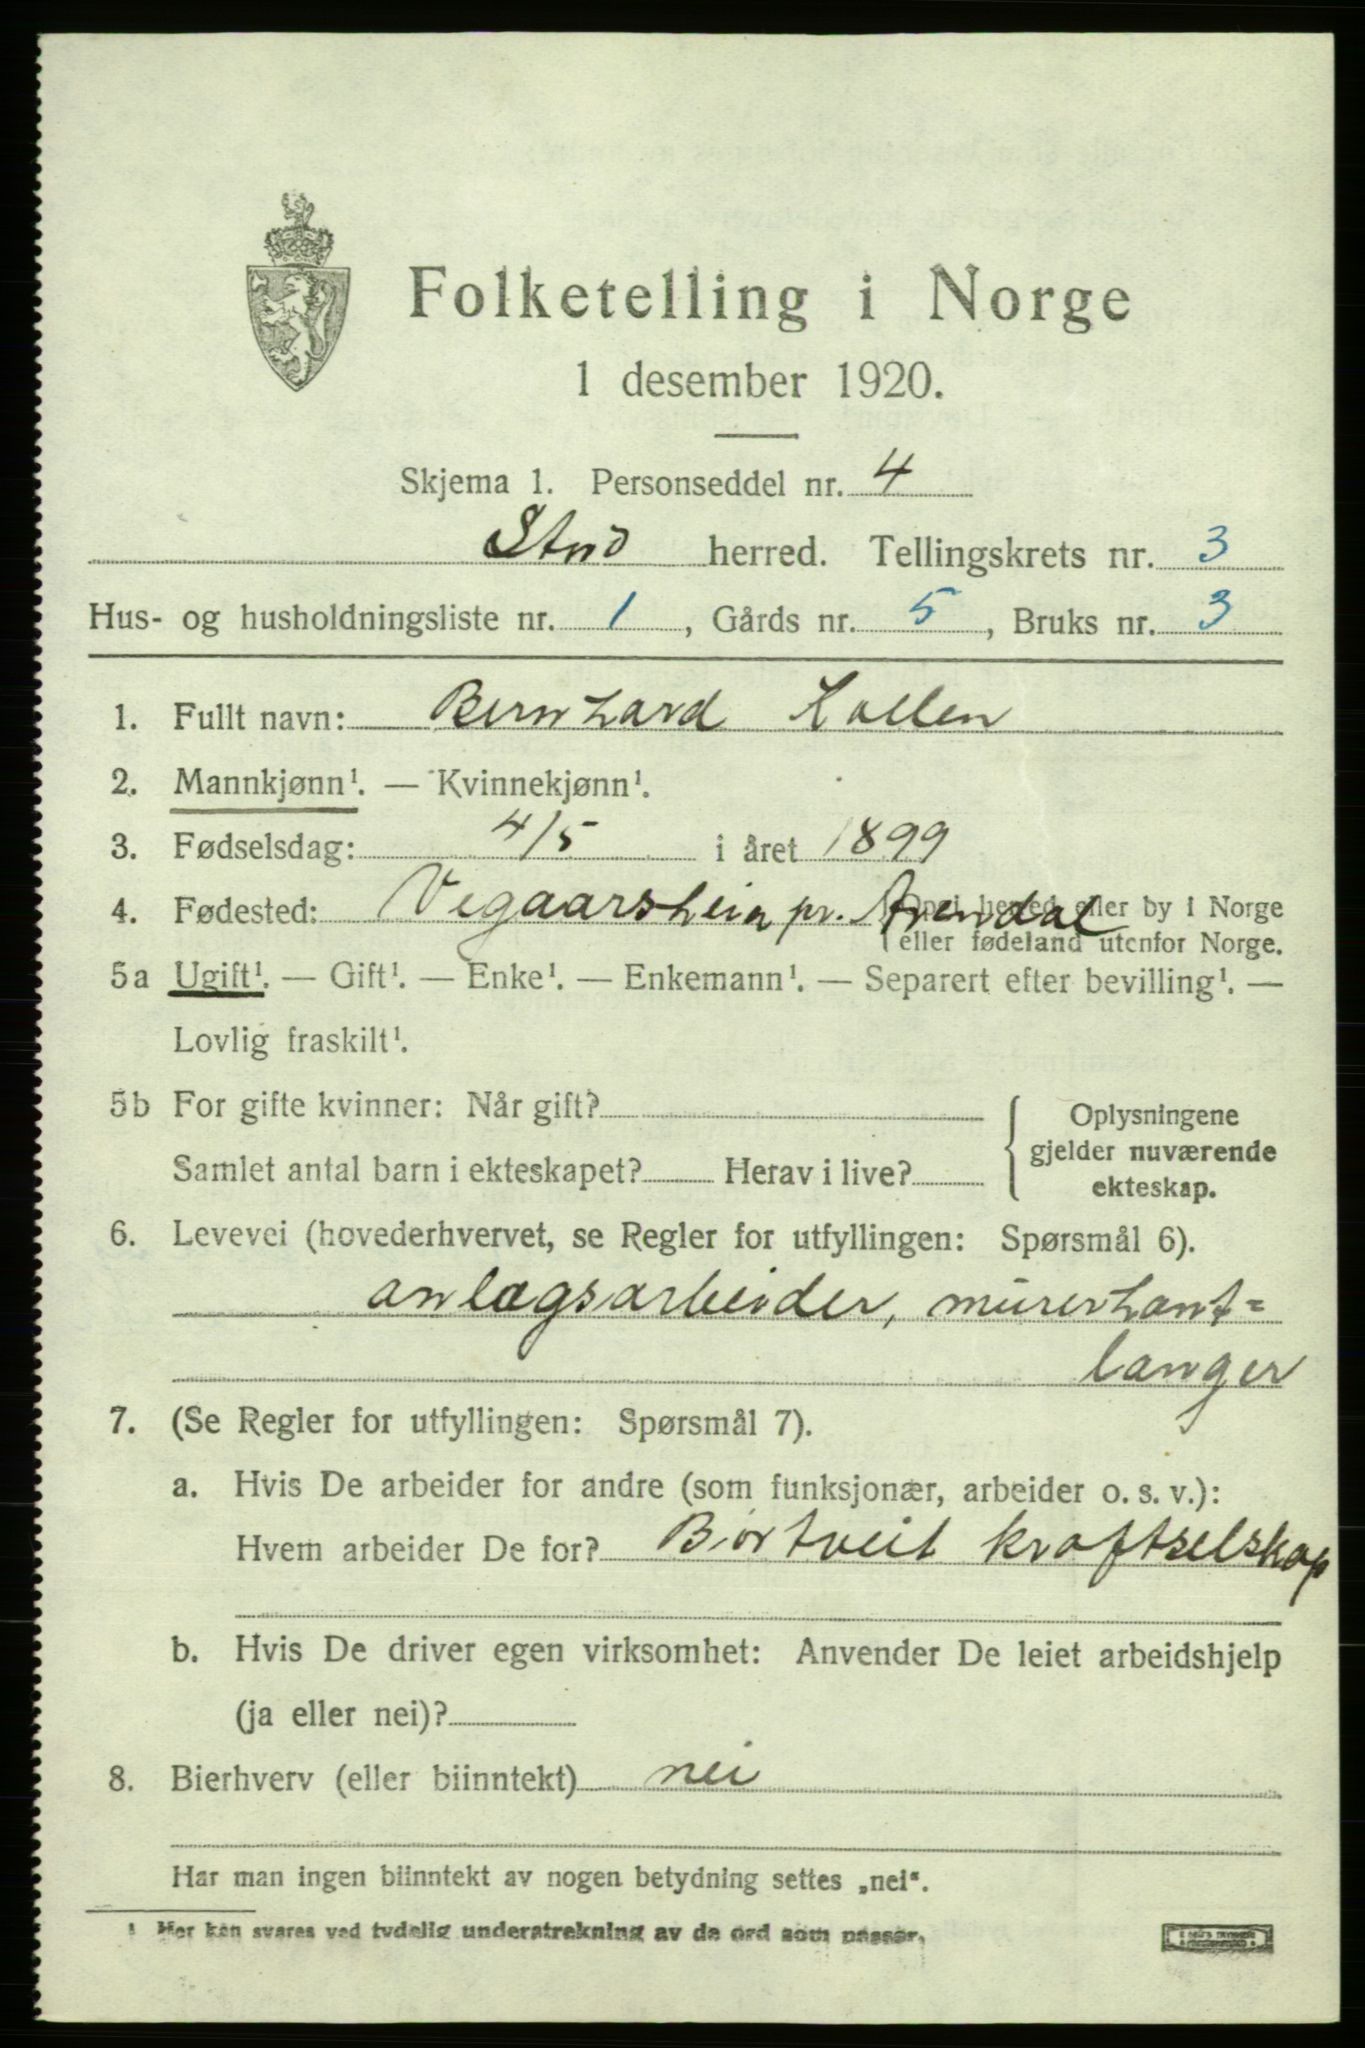 Folketelling i Norge
1 desember 1920.
Skjema 1. Personseddel nr. 4
Stord herred. Tellingskrets nr. 3
Hus- og husholdningsliste nr. 1, Gårds nr. 5, Bruks nr. 3
1. Fullt navn: Bernhard Kollen
2. Mannkjønn¹. — Kvinnekjønn¹.
3. Fødselsdag: 4/5 i året 1899
4. Fødested: Vegaarsheia pr. Arendal (Opgi herred eller by i Norge
eller fødeland utenfor Norge.
5a Ugift¹. — Gift¹. — Enke¹. — Enkemann¹. — Separert efter bevilling¹. —
Lovlig fraskilt¹.
5b For gifte kvinner: Når gift?
Samlet antal barn i ekteskapet? Herav i live?
Oplysningene
gjelder nuværende
ekteskap.
6. Levevei (hovederhvervet, se Regler for utfyllingen: Spørsmål 6).
anlægsarbeider, murerhant=
langer
7. (Se Regler for utfyllingen: Spørsmål 7).
a. Hvis De arbeider for andre (som funksjonær, arbeider o. s. v.):
Hvem arbeider De for? Børtveit kraftselskap
b. Hvis De driver egen virksomhet: Anvender De leiet arbeidshjelp
(ja eller nei)?
8. Bierhverv (eller biinntekt) nei
Har man ingen biinntekt av nogen betydning settes „nei“.
¹ Her kan svares ved tydelig understrekning av de ord som passer.